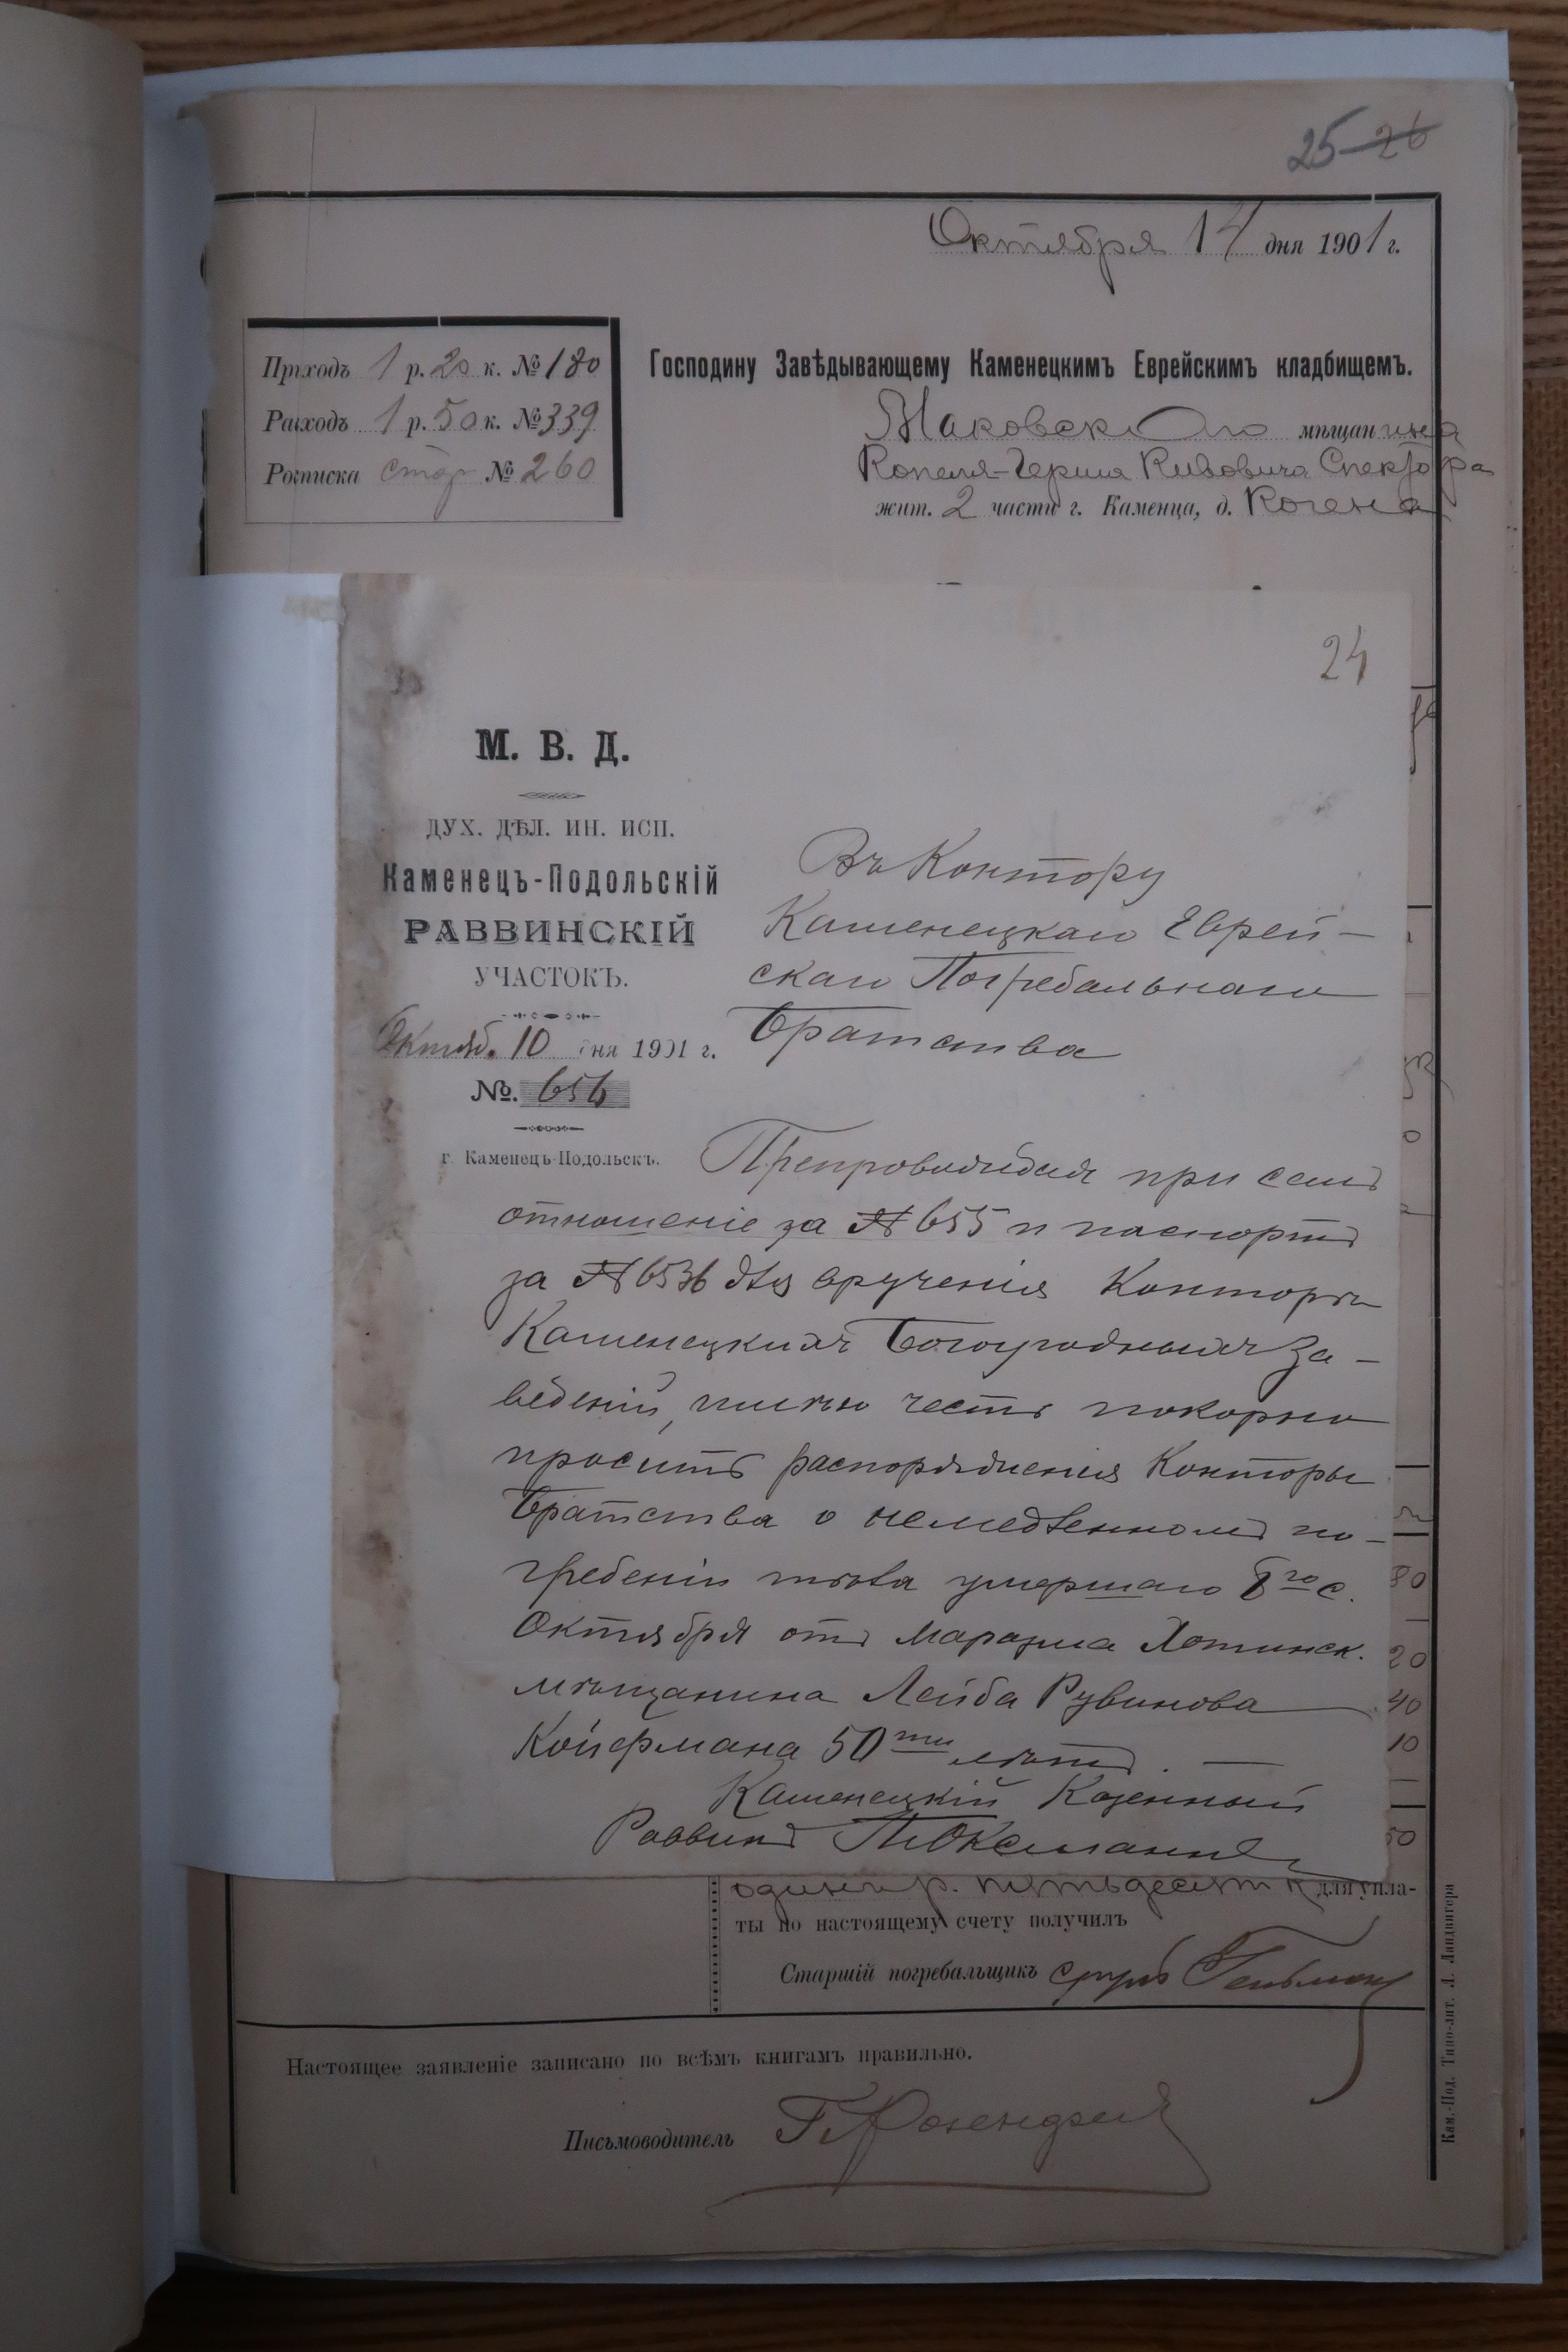 25 26
Октября 14 дня 1901 г.
Приходъ 1 р. 20 к. № 180
Расходъ 1 р. 50 к. № 339
Росписка стор № 260
Господину Завѣдывающему Каменецкимъ Еврейскимъ кладбищемъ.
Жаковскаго мѣщанина
Копеля-Герша Кивовича Спектора
жит. 2 части г. Каменца, д. Когена
24
М. В. Д.
ДУХ. ДѢЛ. ИН. ИСП.
Каменецъ-Подольскій
РАВВИНСКІЙ
УЧАСТОКЪ.
Октяб. 10 дня 1901 г.
№. 656
г. Каменецъ-Подольскъ.
Въ Контору
Каменецкаго Еврей-
скаго Погребальнаго
Братства
Препровождая при семъ
отношеніе за № 655 и паспортъ
за № 6536 для врученія Конторѣ
Каменецкихъ Богоугодныхъ За-
веденій, имѣю честь покорно
просить распоряженія Конторы
Братства о немедленномъ по-
гребеніи тѣла умершаго 8го с.
Октября отъ маразма Хотинск.
мѣщанина Лейба Рувинова
Койфмана 50ти лѣтъ.
Каменецкій Казенный
Раввинъ
80
20
40
10
50
одинъ р. пятьдесят к для упла-
ты по настоящему счету получилъ
Старшій погребальщикъ
Настоящее заявленіе записано по всѣмъ книгамъ правильно.
Письмоводитель
Кам.-Под. Типо-лит. Л. Ландвигера